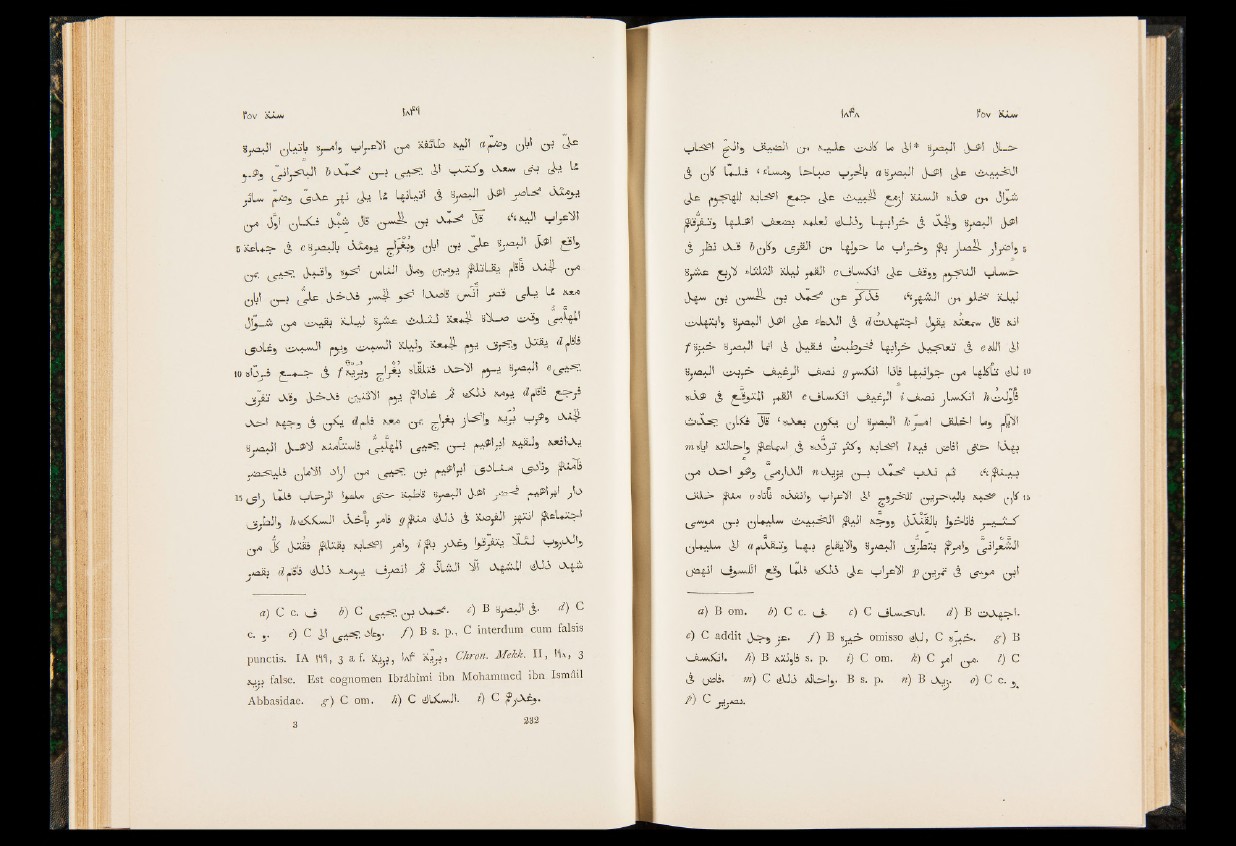 سنة ٢٥٧ ١٨٤٨
حال اهل البصرة *الى ما كانت عليه من الضيق والحّ اصحاب
الخبيث على اهل البصرة a بالحرب صباحا ومساء، فلمّا كان فى
شوّال من هذه السنة ازمع الخبيث على جمع اصحابه للهجوم على
اهل البصرة والجدّ فى خرابها وذلك لعلمه بضعف اهلها وتفرّقهم
5 واضرار الحصار بهم وخراب ما حولها من القرى وكان b قد نظر فى
حساب النجوم ووقف على انكساف c القمر ليلة الثلثاء لاربع عشرة
ليلة تخلو من الشهر، فذُكر عن محمّد بن الحسن بن سهل
انه قال سمعتُه يقول اجتهدتُ d فى الدعاء على اهل البصرة وابتهلت
الى الله e فى تعجيل خرابها فخوطبتُ فقيل لى انما البصرة خبزة f
10 لك تأكلها من جوانبها فاذا انكسر g نصف الرغيف خربت البصرة
فأوّلتُ h انكسار نصف i الرغيف انكساف c القمر المتوقّع فى هذه
الايّام وما اخلق امر k البصرة ان يكون بعده، قال فكان يحدّث
بهذا حتى افاض فيه l اصحابه وكثر تردّده فى اسماعهم واجالته m اياه
بينهم، ثم ندب محمّد بن يزيد n الدارمىّ وهو احد من
15 كان صحبه بالبحرين للخروج الى الاعراب وانفذه فأتاه o منهم خلق
كثير فاناخوا بالقَنْدَل ووجّه اليهم الخبيث سليمان بن موسى
الشَّعْرانىّ وامرهم بتطرّق البصرة والايقاع بها وتقدّم a الى سليمان
ابن موسى فى تمرين p الاعراب على ذلك فلمّا وقع الكسوف انهض
a) B om. b) C c. ف. c) C انخساف. d) B اجتهدت.
e) C addit عز وجل. f) B خبزة omisso لك, C خبزه. g) B
انكسف. h) B s. p. i) C om. k) C من امر. l) C
فاض فى. m) C واحاله ذلك. B s. p. n) B يزيد. o) C c. و.
p) C
سنة ٢٥٧ ١٨٤٩
علىّ بن ابان وضمّ a اليه طائفة من الاعراب وامره بإتيان البصرة
ممّا يلى بنى سعد وكتب الى يحيى بن محمّد b البحرانىّ وهو
يومئذ محاصر اهل البصرة فى اتيانها ممّا يلى نهر عدىّ وضمّ سائر
الاعراب اليه، قال محمّد بن الحسن قال شبل فكان اوّل من
5 واقع اهل البصرة علىّ بن ابان وبُغْراج يومئذ بالبصرة c فى جماعة
من الجند فاقام يقاتلهم يومين ومال الناس نحوه واقبل يحيى بمن
معه ممّا يلى قصر أنس قاصدا نحو الجسر فدخل علىّ بن ابان
المهلّبىّ وقت صلاة الجمعة لثلث عشرة ليلة بقيت من شوّال
فاقام d يقتل ويحرق يوم الجمعة وليلة السبت ويوم السبت وغادى
10 يحيى e البصرة يوم الاحد فتلقّاه بغراج وبُرَيْه f فى جمع فردّاه
فرجع فاقام d يومه ذلك ثم غاداهم يوم الاثنين فدخل وقد تفرّق
الجند وهرب بُرَيْه وانحاز بغراج بمن معه فلم d يكن فى وجهه احد
يدافعه ولقيه ابرهيم بن يحيى المهلّبىّ فاستأمنه لاهل البصرة
فآمنهم ونادى منادى ابرهيم بن يحيى من اراد الامان فليحضر
15 دار ابرهيم فحضر اهل البصرة قاطبة حتى ملئوا الرحاب فلمّا راى
اجتماعهم انتهز الفرصة فى ذلك منهم g فامر بأخذ السكك h والطرق
والدروب لئلّا يتفرّقوا وغدر بهم i وامر اصحابه بقتلهم فقُتل كلّ من
شهد ذلك المشهد الّا الشاذّ ثم انصرف يومه ذلك فاقام d بقصر
a) C c. ف b) C محمد بن يحيى. c) B فى البصرة. d) C
c. و. e) C وعاد يحيى الى. f) B s. p., C interdum cum falsis
punctis. IA ١٦٩, 3 a f. بريه, Chron. Mekk. II, ١٩٨, 3
يزيد false. Est cognomen Ibrâhîmi ibn Mohammed ibn Ismâîl
Abbasidae. g) C om. h) C السكاك. i) C وغدرهم.
3 232